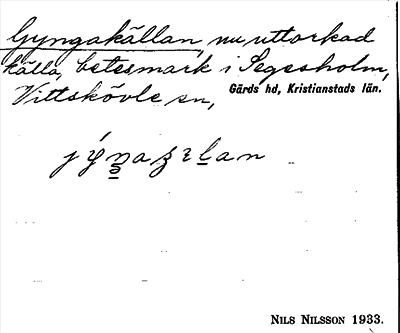 Gyngakällan, nu uttorkad
källa, betesmark i Segesholm,
Vittskövle sn, Gärds hd, Kristianstads län.
NILS NILSSON 1933.